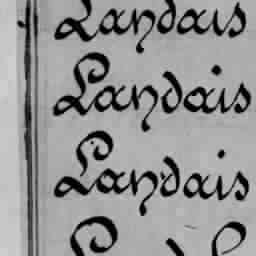 Landais
Landais
Landais